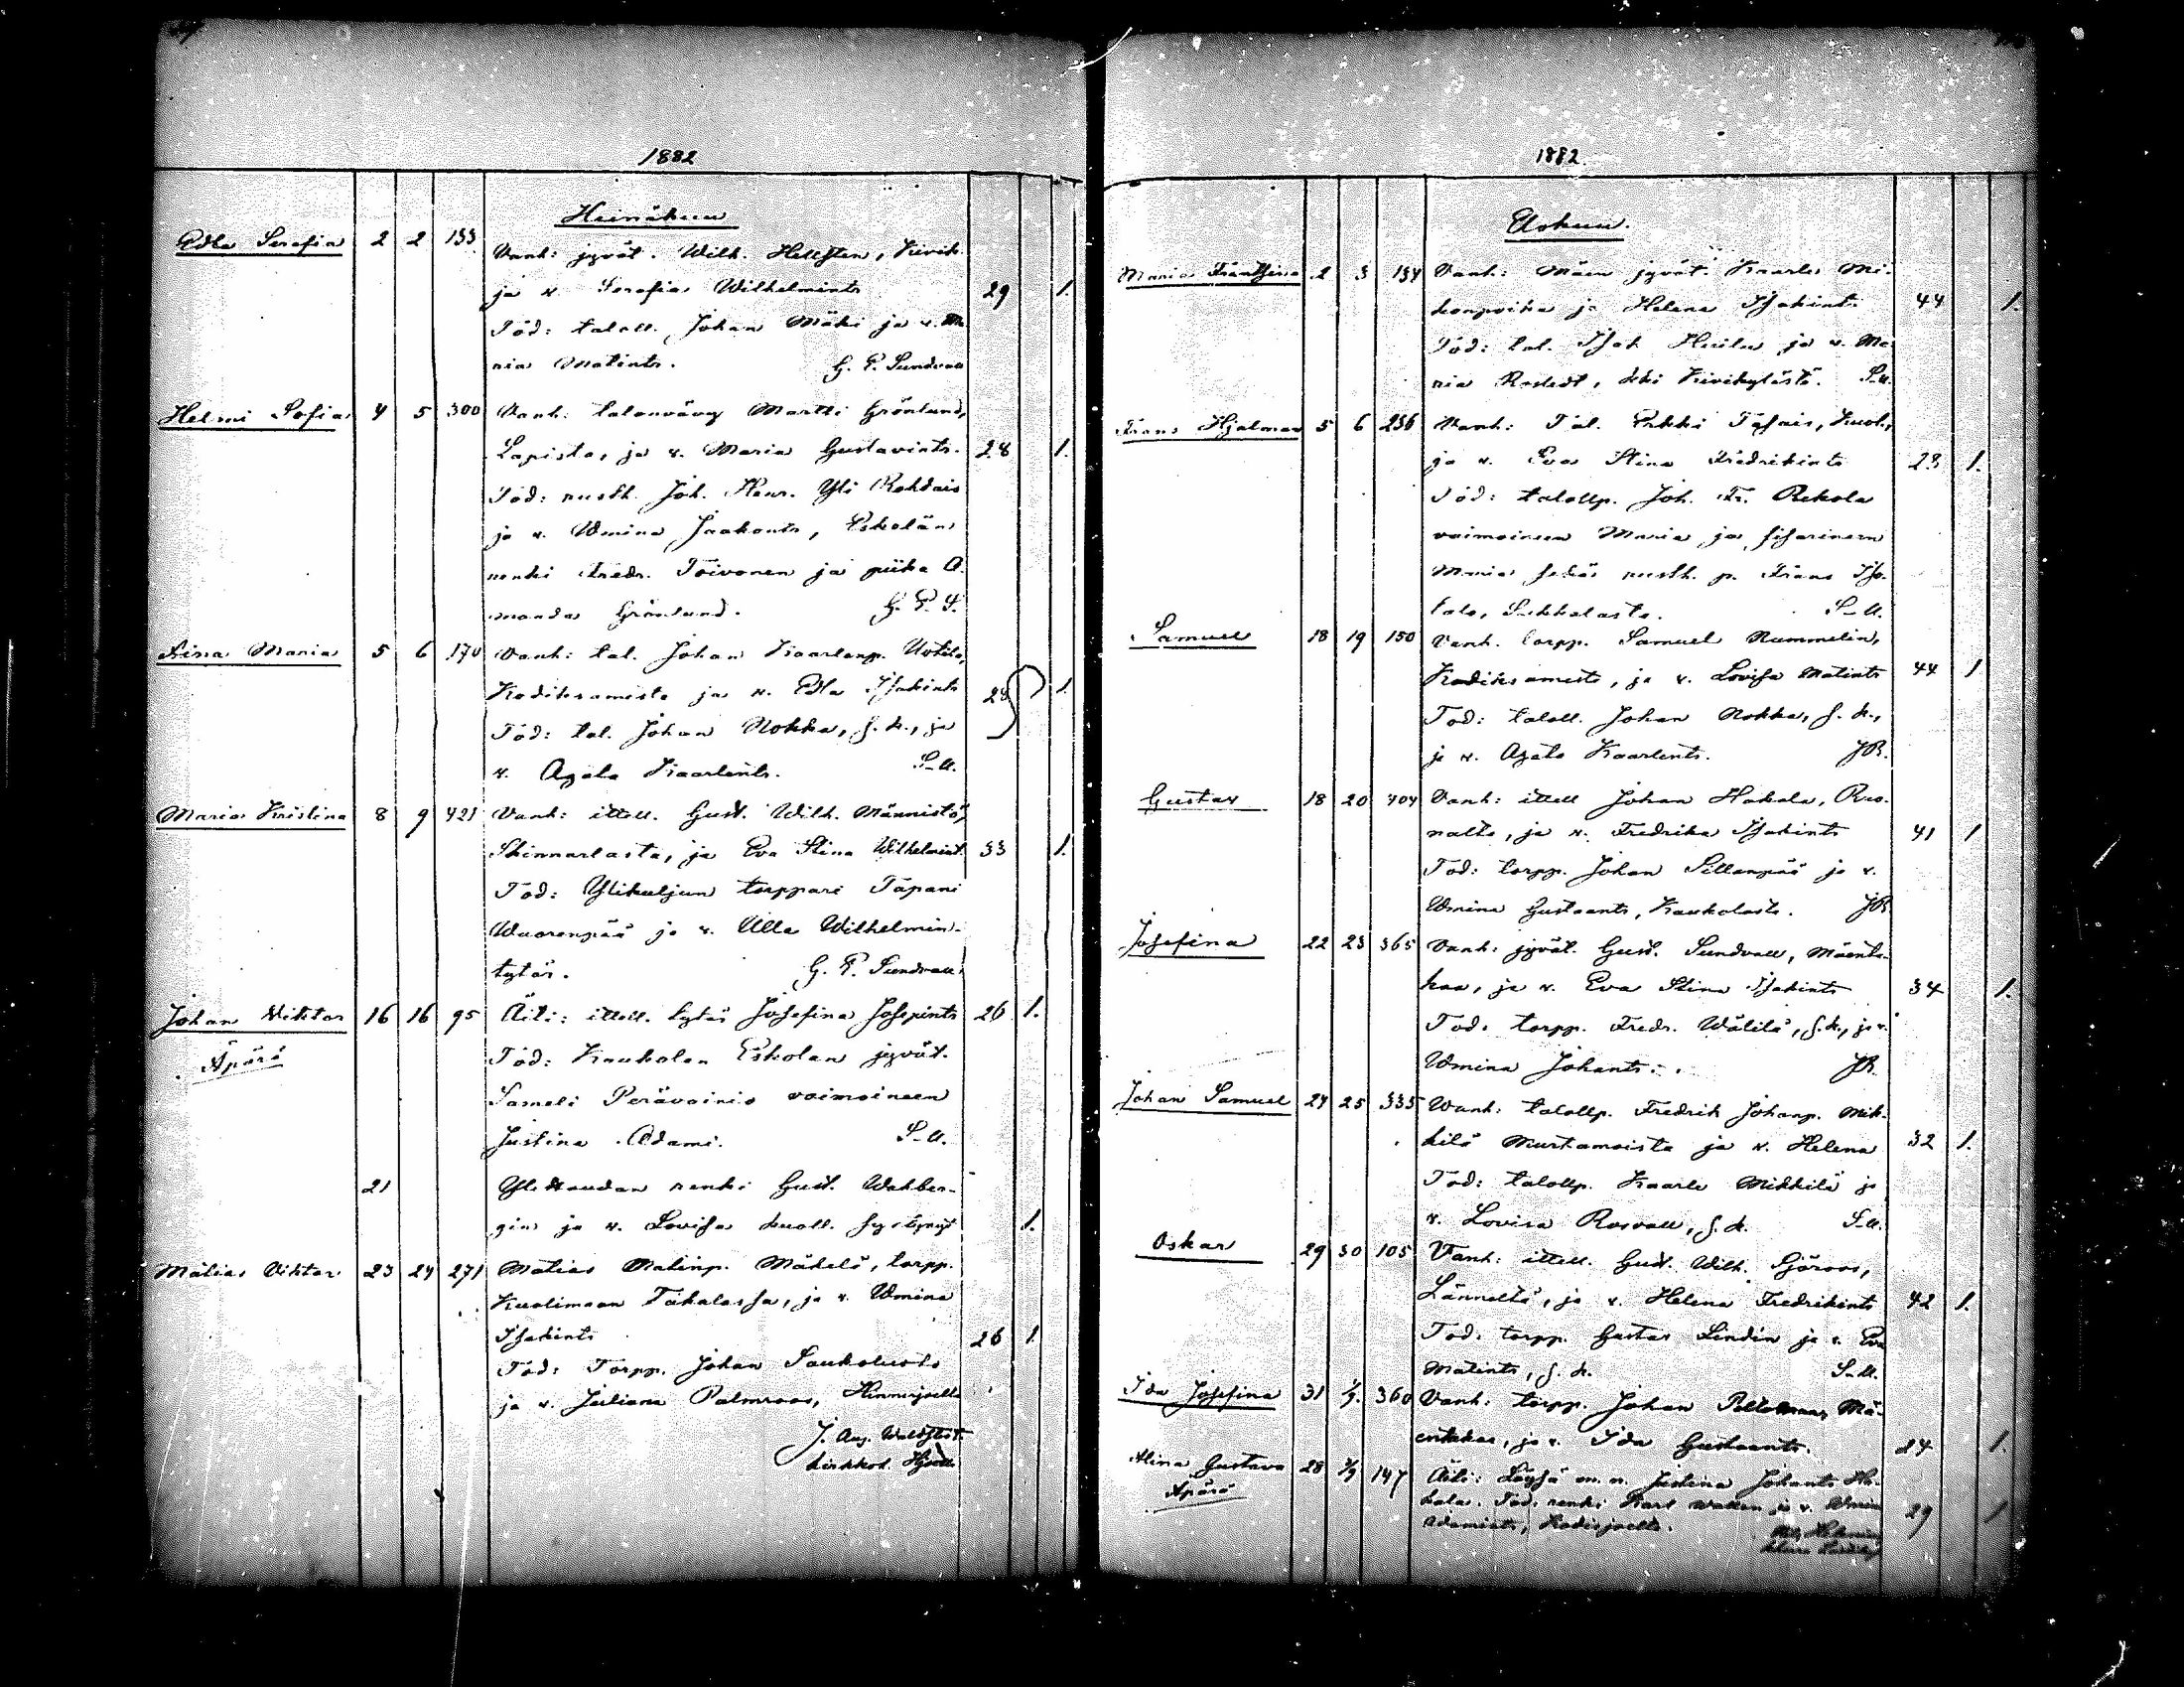 1882
Heinäkuu
Edla Serafia 2 2 133 Vanh: jyvät. Wilh. Hellsten, Kivik.
ja v. Serafia Wilhelmint. 29 1.
Tod: taloll. Johan Mäki ja v. Ma
ria Matints. G. E. Sundvall
Helmi Sofia 4 5 300 Vanh: talonvävy Martti Grönlund,
Lapista, ja v. Maria Gustavints. 28 1.
Tod: rusth. Joh. Henr. Yli Rohdais
ja v. Wmina Jaakonts, Eskolän
renki Fredr. Toivonen ja piika A.
manda Grönlund. G. E. S.
Aina Maria 5 6 170 Vanh: tal. Johan Kaarlenp. Uotila,
Kodiksamista ja v. Edla Isakints 28 1.
Tod: tal. Johan Nokka, s. k., ja
v. Agata Kaarlents. S-ll.
Maria Kristina 8 9 421 Vanh: itell. Gust. Wilh. Männistö,
Skinnarlasta, ja Eva Stina Wilhelmint. 33 1.
Tod: Ylikuljun torppari Tapani
Wuorenpää ja v. Ulla Wilhelmin-
tytär. G. E. Sundvall
Johan Viktor 16 16 95 Äiti: itell. tytär Josefina Josepints 26 1.
Äpärä Tod: Kaukolan Eskolan jyvät.
Sameli Perävainio vaimoineen
Justina Adami. S-ll.
21 renki Gust. Wahlber-
gin ja v. Lovisa kuoll. 1.
Matias Viktor 23 24 271 Matias Matinp. Mäkelä, torpp.
Kuolimaan Takalassa, ja v. Wmina
Isakints 26 1.
Tod: Torpp. Johan Saukoluoto
ja v. Juliana Palmroos, Hinnerjoella
J. Aug. Waldstedt
kirkkoh.
1882.
Elokuu.
Maria Frantsina 2 3 134 Vanh: Mäen jyvät. Kaarle Mi-
konpoika ja Helena Isakints 44 1.
Tod: tal. Isak Heikola ja v. Ma
ria Rostedt, Kivikylästä. S-ll.
Frans Hjalmar 5 6 236 Vanh: Tal. Erkki Tähtis, Kuol.,
ja v. Eva Stina Fredrikints 23 1.
Tod: talollp. Joh. Fr. Rekola
vaimoineen Maria ja sisarineen
Maria sekä rusth. p. Frans Iso-
talo, Sukkalasta. S-ll.
Samuel 18 19 150 Vanh. torpp. Samuel Nummelin,
Kodiksamista, ja v. Lovisa Matints 44 1
Tod: taloll. Johan Nokka, s. k.,
ja v. Agata Kaarlents. JR.
Gustav 18 20 404 Vanh: itell Johan Hakala, Ruo-
nalta, ja v. Fredrika Isakints 41 1
Tod: torpp. Johan Sillanpää ja v.
Wmina Gustaants, Kaukolasta. JR
Josefina 22 23 365 Vanh: jyvät. Gust. Sundvall, Mäents-
kaa, ja v. Eva Stina Isakints 34 1.
Tod: torpp. Fredr. Wälilä, s. k., ja v.
Wmina Johants. JR.
Johan Samuel 24 25 335 Vanh: talollp. Fredrik Johanp. Mik-
kilä Murtamoista ja v. Helena 32 1.
Tod: talollp. Kaarle Mikkilä ja
v. Lovisa Rosvall, s. k. S-ll.
Oskar 29 30 105 Vanh: itell. Gust. Wilh. Sjöroos,
Länneltä, ja v. Helena Fredrikints 42 1.
Tod: torpp. Gustav Lindin ja v. Eva
Matints, s. k. S-ll.
Ida Josefina 31 1/9. 360 Vanh: torpp. Johan Peltomaa, Mä-
entakaa, ja v. Ida Gustaants. 24 1.
Alina Gustava 28 147 Äiti: Löysä Justina Johants Ha-
Äpärä kala. Tod: renki Karl Wallen ja v. Wmina 29 1
Adamints, Kodisjoelta.